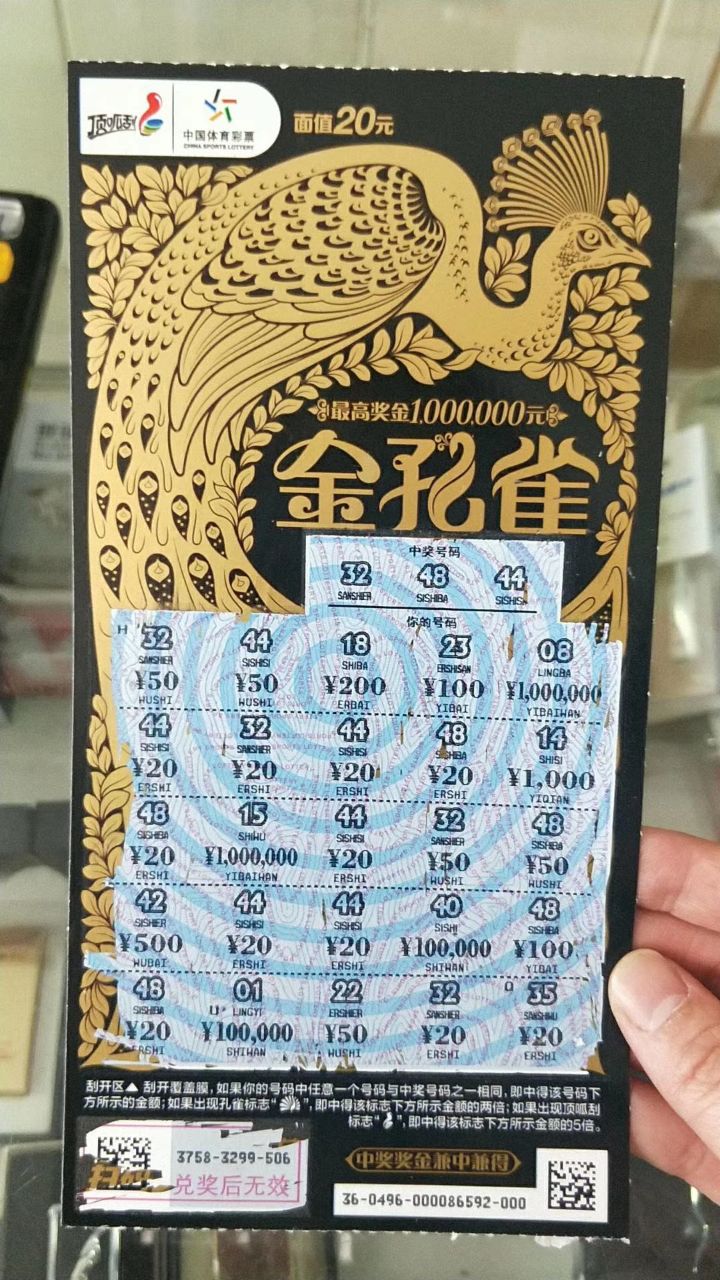 顶呱刮 中国体育彩票 面值20元
CHINA SPORTS LOTTERY
最高奖金1,000,000元
金孔雀
中奖号码
32 48 44
SANSHIER SISHIBA SISHISI
你的号码
H 32 44 18 23 08
SANSHIER SISHISI SHIBA ERSHISAN LINGBA
¥50 ¥50 ¥200 ¥100 ¥1,000,000
WUSHI WUSHI ERBAI YIBAI YIBAIWAN
44 32 44 48 14
SISHISI SANSHIER SISHISI SISHIBA SHISI
¥20 ¥20 ¥20 ¥20 ¥1,000
ERSHI ERSHI ERSHI ERSHI YIQIAN
48 15 44 32 48
SISHIBA SHIWU SISHISI SANSHIER SISHIBA
¥20 ¥1,000,000 ¥20 ¥50 ¥50
ERSHI YIBAIWAN ERSHI WUSHI WUSHI
42 44 44 40 48
SISHIER SISHISI SISHISI SISHI SISHIBA
¥500 ¥20 ¥20 ¥100,000 ¥100
WUBAI ERSHI ERSHI SHIWAN YIBAI
48 01 22 32 Q 35
SISHIBA U LINGYI ERSHIER SANSHIER SANSHIWU
¥20 ¥100,000 ¥50 ¥20 ¥20
ERSHI SHIWAN WUSHI ERSHI ERSHI
刮开区▲ 刮开覆盖膜,如果你的号码中任意一个号码与中奖号码之一相同,即中得该号码下
方所示的金额;如果出现孔雀标志“ ”,即中得该标志下方所示金额的两倍;如果出现顶呱刮
标志“ ”,即中得该标志下方所示金额的5倍。
3758-3299-506
兑奖后无效
中奖奖金兼中兼得
36-0496-000086592-000